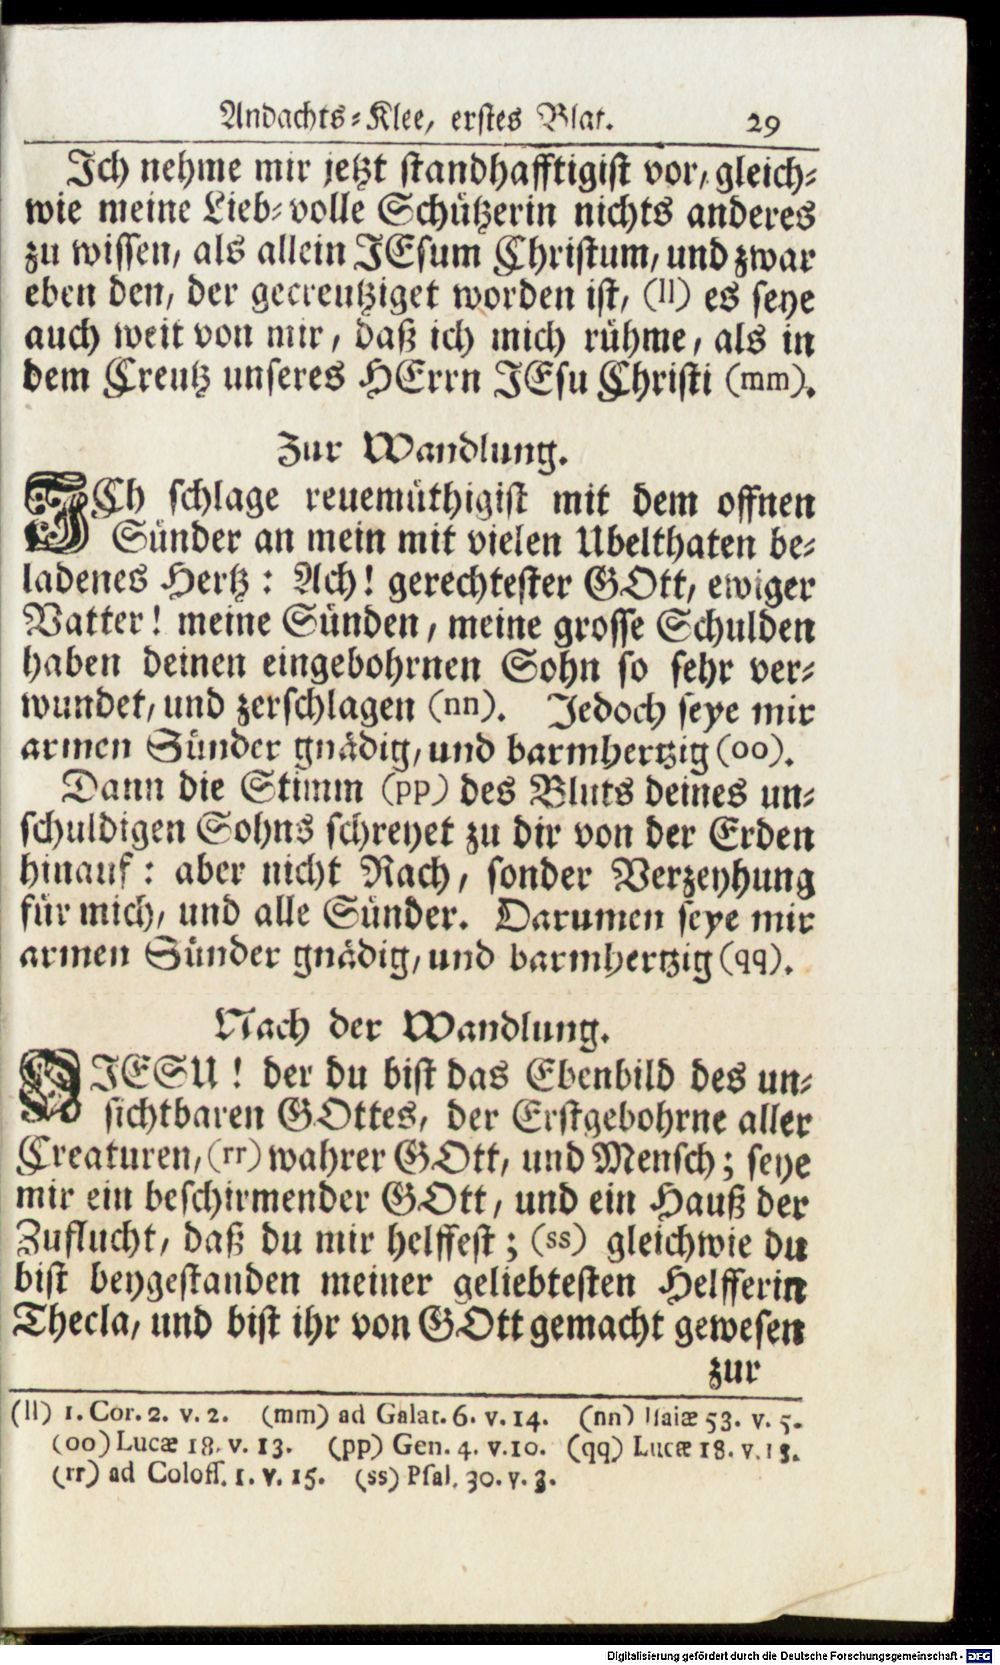 Andachts-Klee, erstes Blat. 29
Ich nehme mir jetzt standhafftigist vor, gleich-
wie meine Lieb-volle Schützerin nichts anderes
zu wissen, als allein JEsum Christum, und zwar
eben den, der gecreutziget worden ist, (ll) es seye
auch weit von mir, daß ich mich rühme, als in
dem Creutz unseres HErrn JEsu Christi (mm).
Zur Wandlung.
ICh schlage reuemüthigist mit dem offnen
Sünder an mein mit vielen Ubelthaten be-
ladenes Hertz: Ach! gerechtester GOtt, ewiger
Vatter! meine Sünden, meine grosse Schulden
haben deinen eingebohrnen Sohn so sehr ver-
wundet, und zerschlagen (nn). Jedoch seye mir
armen Sünder gnädig, und barmhertzig (oo).
Dann die Stimm (pp) des Bluts deines un-
schuldigen Sohns schreyet zu dir von der Erden
hinauf: aber nicht Rach, sonder Verzeyhung
für mich, und alle Sünder. Darumen seye mir
armen Sünder gnädig, und barmhertzig (qq).
Nach der Wandlung.
O JESU! der du bist das Ebenbild des un-
sichtbaren GOttes, der Erstgebohrne aller
Creaturen, (rr) wahrer GOtt, und Mensch; seye
mir ein beschirmender GOtt, und ein Hauß der
Zuflucht, daß du mir helffest; (ss) gleichwie du
bist beygestanden meiner geliebtesten Helfferin
Thecla, und bist ihr von GOtt gemacht gewesen
zur
(ll) 1. Cor. 2. v. 2. (mm) ad Galat. 6. v. 14. (nn) Isaiæ 53. v. 5.
(oo) Lucæ 18. v. 13. (pp) Gen. 4. v. 10. (qq) Lucæ 18. v. 13.
(rr) ad Coloss. 1. v. 15. (ss) Psal. 30. v. 3.
Digitalisierung gefördert durch die Deutsche Forschungsgemeinschaft - DFG